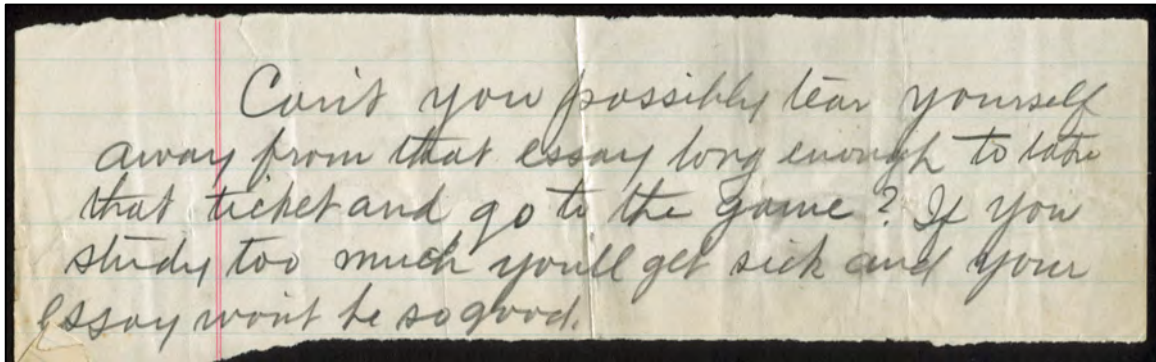 Can't you possibly tear yourself
away from that essay long enough to take
that ticket and go to the game? If you
study too much you'll get sick and your
essay won't be so good.